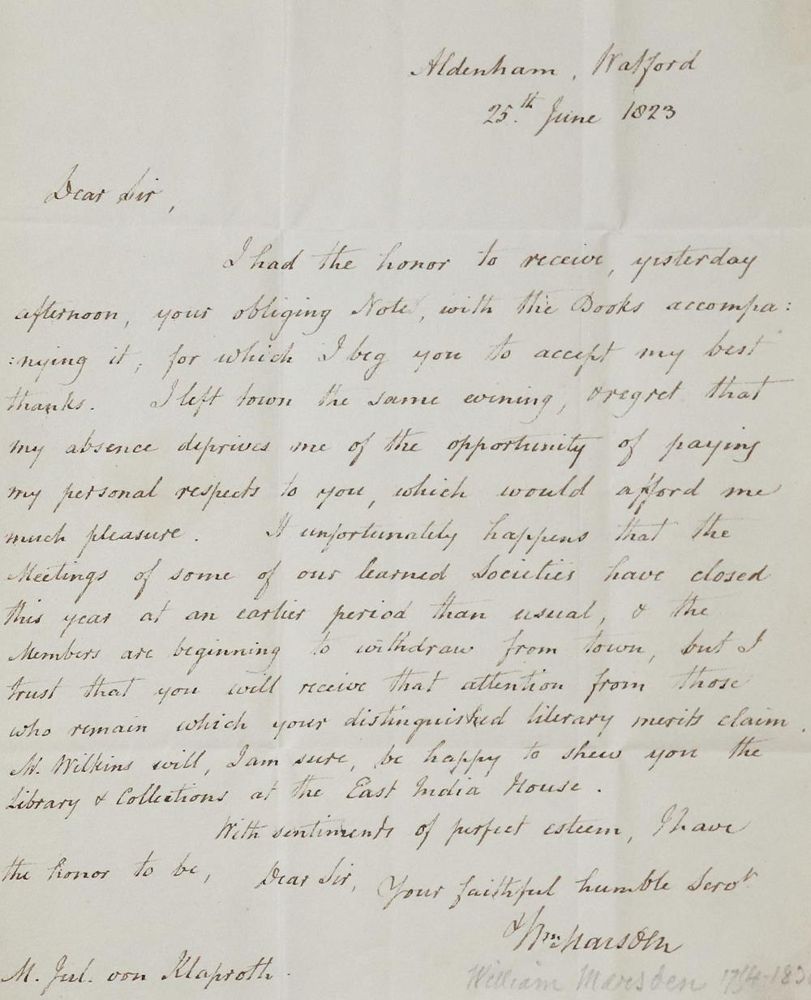 Aldenham, Watford
25.th June 1823
Dear Sir,
I had the honor to receive, yesterday
afternoon, your obliging Note, with the Books accompa:
:nying it, for which I beg you to accept my best
thanks. I left town the same evening, & regret that
my absence deprives me of the opportunity of paying
my personal respects to you, which would afford me
much pleasure. It unfortunately happens that the
Meetings of some of our learned Societies have closed
this year at an earlier period than usual, & the
Members are beginning to withdraw from town, but I
trust that you will receive that attention from those
who remain which your distinguished literary merits claim.
Mr. Wilkins will, I am sure, be happy to shew you the
Library & Collections at the East India House.
With sentiments of perfect esteem, I have
the honor to be, Dear Sir, Your faithful humble Servt
Wm. Marsden
M. Jul. von Klaproth.
William Marsden 1754-183